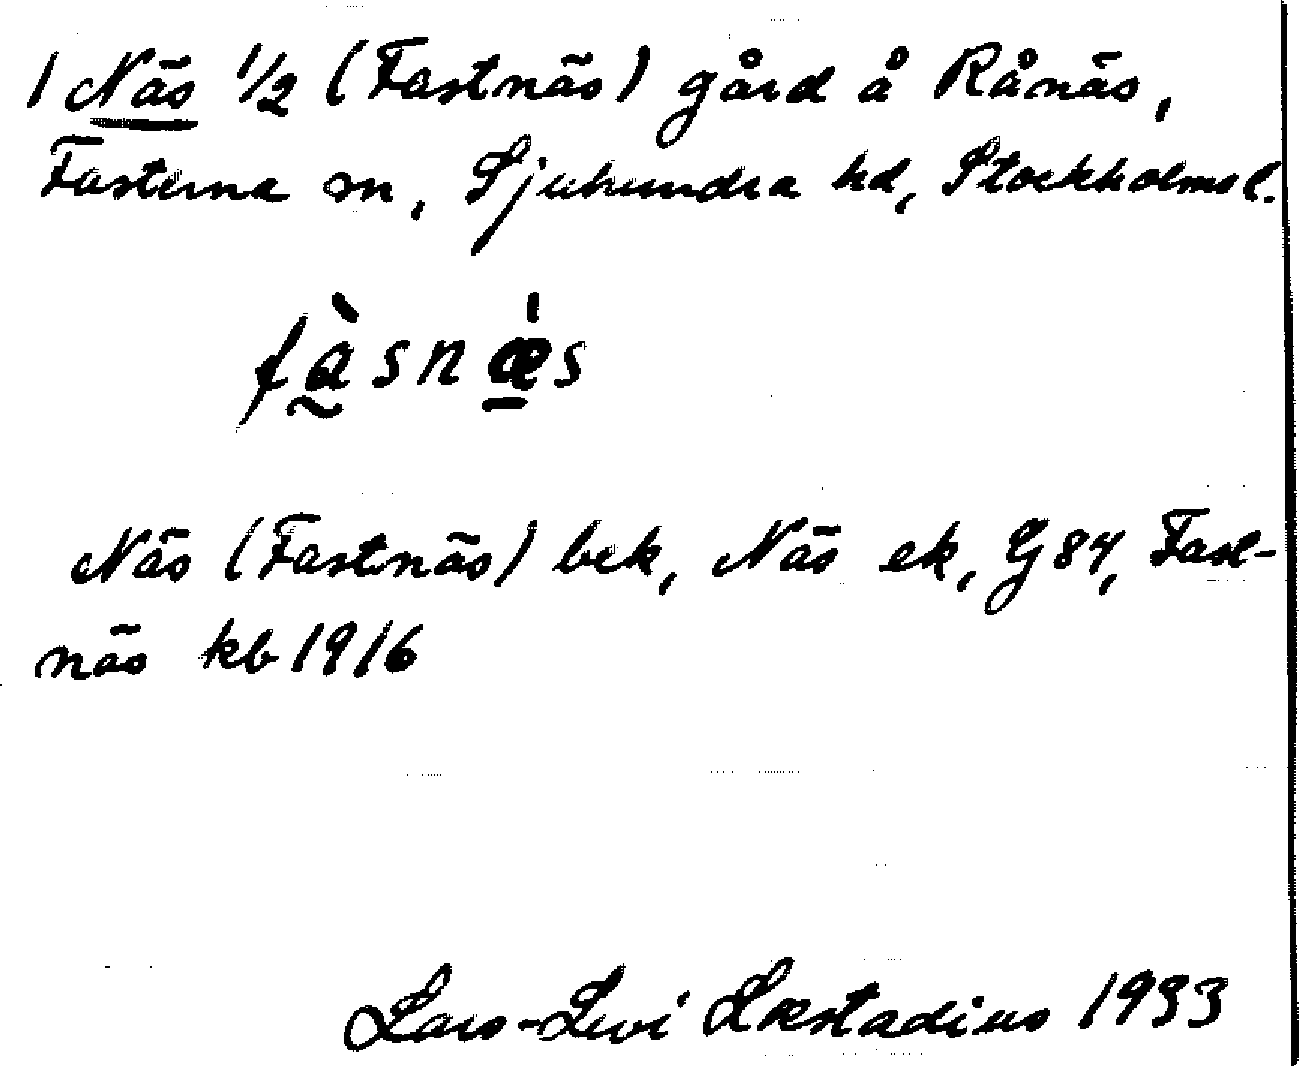 1 Näs 1/2 (Fastnäs) gård å Rånäs,
Fasterna sn, Sjuhundra hd, Stockholms l.
fà̰snæ̱̍s
Näs (Fastnäs) bek, Näs ek, G 84, Fast-
näs kb 1916
Lars-Levi Læstadius 1933